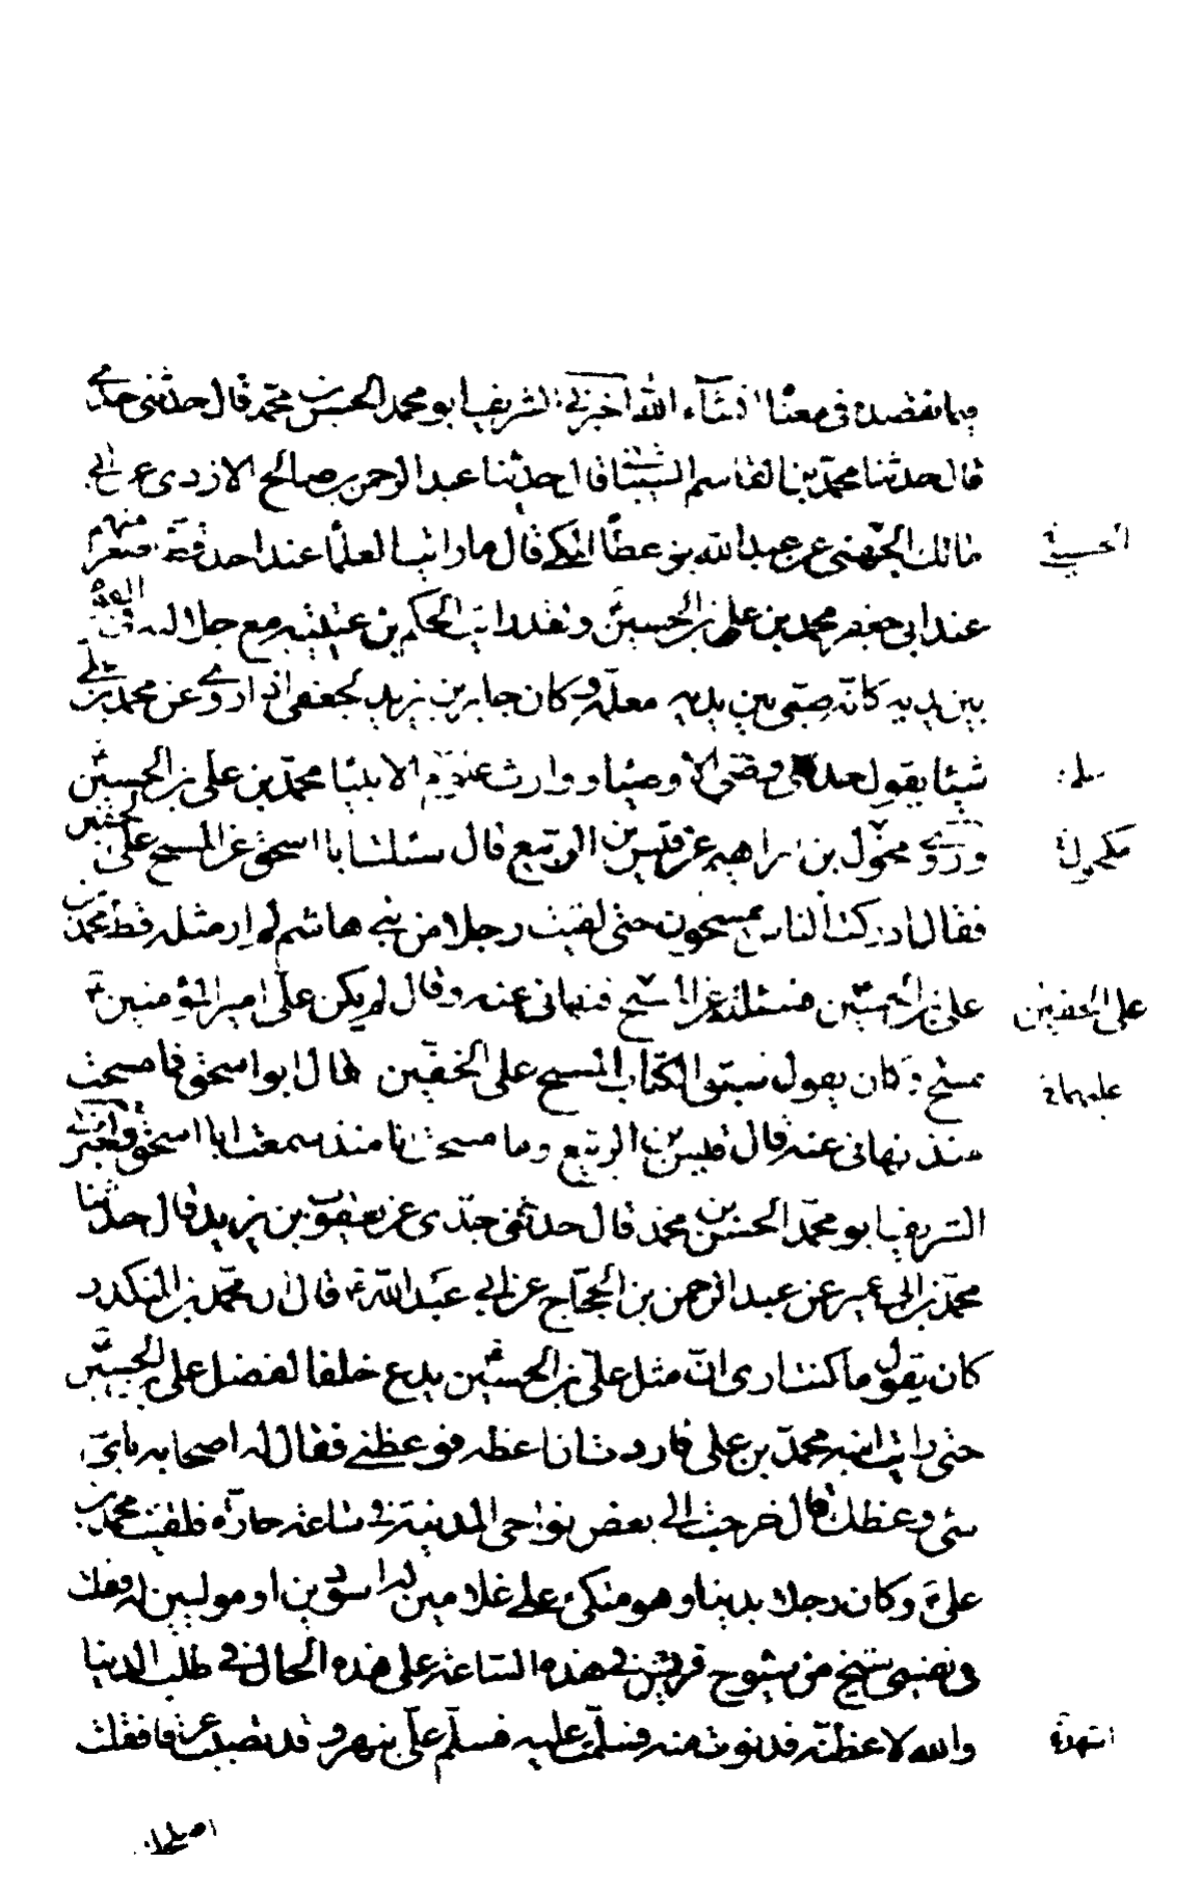 فيما نقصده في معناه ان شاء الله اخبرني الشريف ابو محمد الحسن بن محمد قال حدثني جدي
قال حدثنا محمد بن القاسم الشيباني قال حدثنا عبد الرحمن بن صالح الازدي عن ابي
مالك الجهني عن عبد الله بن عطا المكي قال ما رايت العلما عند احد قط اصغر منهم
عند ابي جعفر محمد بن علي بن الحسين ع ولقد رايت الحكم بن عتيبة مع جلالته في القوم
بين يديه كانه صبي بين يدي معلمه وكان جابر بن يزيد الجعفي اذا روى عن محمد بن علي
شيئا يقول حدثني وصي الاوصياء ووارث علوم الانبيا محمد بن علي بن الحسين
وروى مخول بن ابراهيم عن قيس بن الربيع قال سئلت ابا اسحق عن المسح على الخفين
فقال ادركت الناس يمسحون حتى لقيت رجلا من بني هاشم لم ار مثله قط محمد بن
علي بن الحسين فسئلته عن المسح فنهاني عنه وقال لم يكن علي امير المؤمنين ع
يمسح وكان يقول سبق الكتاب المسح على الخفين قال ابو اسحق فما مسحت
منذ نهاني عنه قال قيس بن الربيع وما مسحت انا منذ سمعت ابا اسحق واخبرني
الشريف ابو محمد الحسن بن محمد قال حدثني جدي عن يعقوب بن يزيد قال حدثنا
محمد بن ابي عمير عن عبد الرحمن بن الحجاج عن ابي عبد الله ع قال ان محمد بن المنكدر
كان يقول ما كنت ارى ان مثل علي بن الحسين يدع خلفا لفضل علي بن الحسين
حتى رايت ابنه محمد بن علي فاردت ان اعظه فوعظني فقال له اصحابه باي
شي وعظك قال خرجت الى بعض نواحي المدينة في ساعة حارة فلقيت محمد بن
علي ع وكان رجلا بدينا وهو متكئ على غلامين له اسودين او موليين له فقلت
في نفسي شيخ من شيوخ قريش في هذه الساعة على هذه الحال في طلب الدنيا
والله لاعظنه فدنوت منه فسلمت عليه فسلم علي بنهر وقد تصبب عرقا فقلت
على الخفين
اصلحك